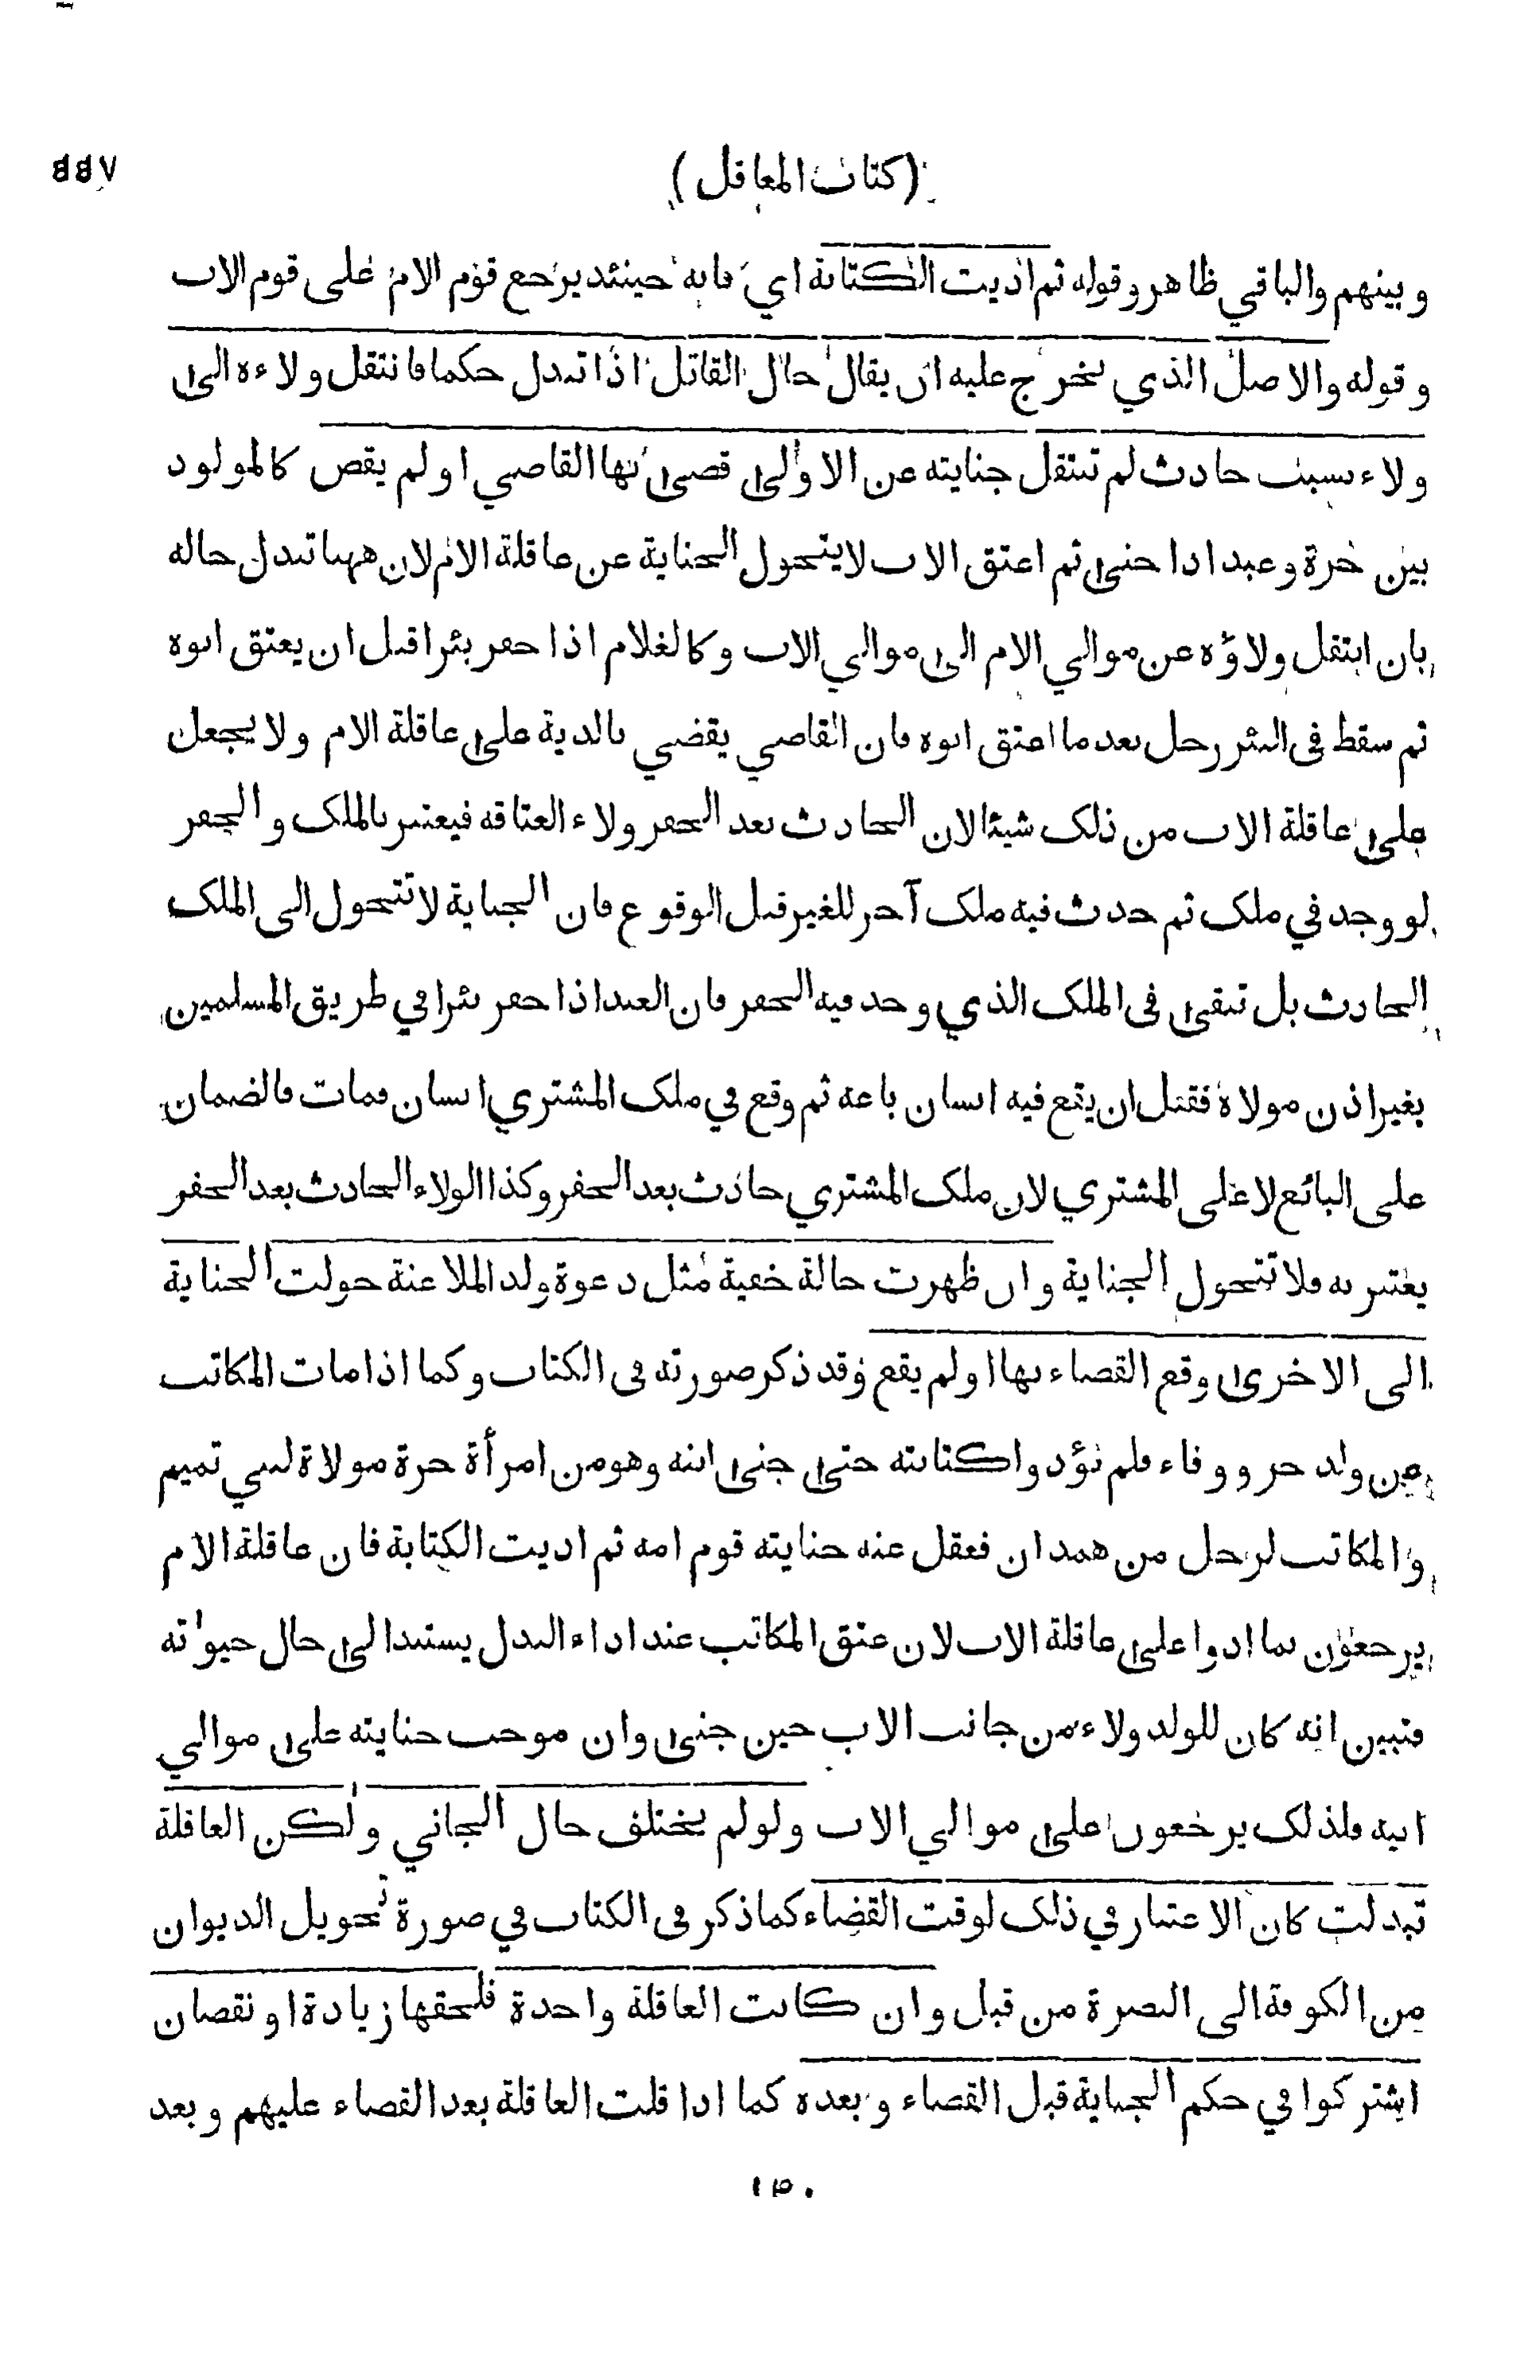 (كتاب المعاقل)
٧٤٤
وبينهم والباقي ظاهر وقوله ثم اديت الكتابة اي فانه حينئد يرجع قوم الام على قوم الاب
وقوله والاصل الذي يخرج عليه ان يقال حال القاتل اذا تبدل حكما فانتقل ولاءه الى
ولاء بسبب حادث لم تنتقل جنايته عن الاولى قضى بها القاضي اولم يقض كالمولود
بين حرة وعبد اذا جنى ثم اعتق الاب لا يتحول الجناية عن عاقلة الام لان ههنا تبدل حاله
بان انتقل ولاؤه عن موالي الام الى موالي الاب وكالغلام اذا حفر بئرا قبل ان يعتق ابوه
ثم سقط في البئر رجل بعد ما اعتق ابوه فان القاضي يقضي بالدية على عاقلة الام ولا يجعل
على عاقلة الاب من ذلك شيئا لان الحادث بعد الحفر ولاء العتاقه فيعتبر بالملك والحفر
لو وجد في ملك ثم حدث فيه ملك آخر للغير قبل الوقوع فان الجناية لا تتحول الى الملك
الحادث بل تبقى في الملك الذي وجد فيه الحفر فان العبد اذا حفر بئرا في طريق المسلمين
بغير اذن مولاة فقبل ان يقع فيه انسان باعه ثم وقع في ملك المشتري انسان فمات فالضمان
على البائع لا على المشتري لان ملك المشتري حادث بعد الحفر وكذا الولاء الحادث بعد الحفر
يعتبر به فلا تتحول الجناية وان ظهرت حالة خفية مثل دعوة ولد الملاعنة حولت الجناية
الى الاخرى وقع القضاء بها اولم يقع وقد ذكر صورته في الكتاب وكما اذا مات المكاتب
عن ولد حر ووفاء فلم يؤدوا كتابته حتى جنى ابنه وهو من امرأة حرة مولاة لبني تميم
والمكاتب لرجل من همدان فعقل عنه جنايته قوم امه ثم اديت الكتابة فان عاقلة الام
يرجعون بما ادوا على عاقلة الاب لان عتق المكاتب عند اداء البدل يستند الى حال حيوته
فتبين انه كان للولد ولاء من جانب الاب حين جنى وان موجب جنايته على موالي
ابيه فلذلك يرجعون على موالي الاب ولو لم يختلف حال الجاني ولكن العاقلة
تبدلت كان الاعتبار في ذلك لوقت القضاء كما ذكر في الكتاب في صورة تحويل الديوان
من الكوفة الى البصرة من قبل وان كانت العاقلة واحدة فلحقها زيادة او نقصان
اشتركوا في حكم الجناية قبل القضاء وبعده كما اذا قلت العاقلة بعد القضاء عليهم وبعد